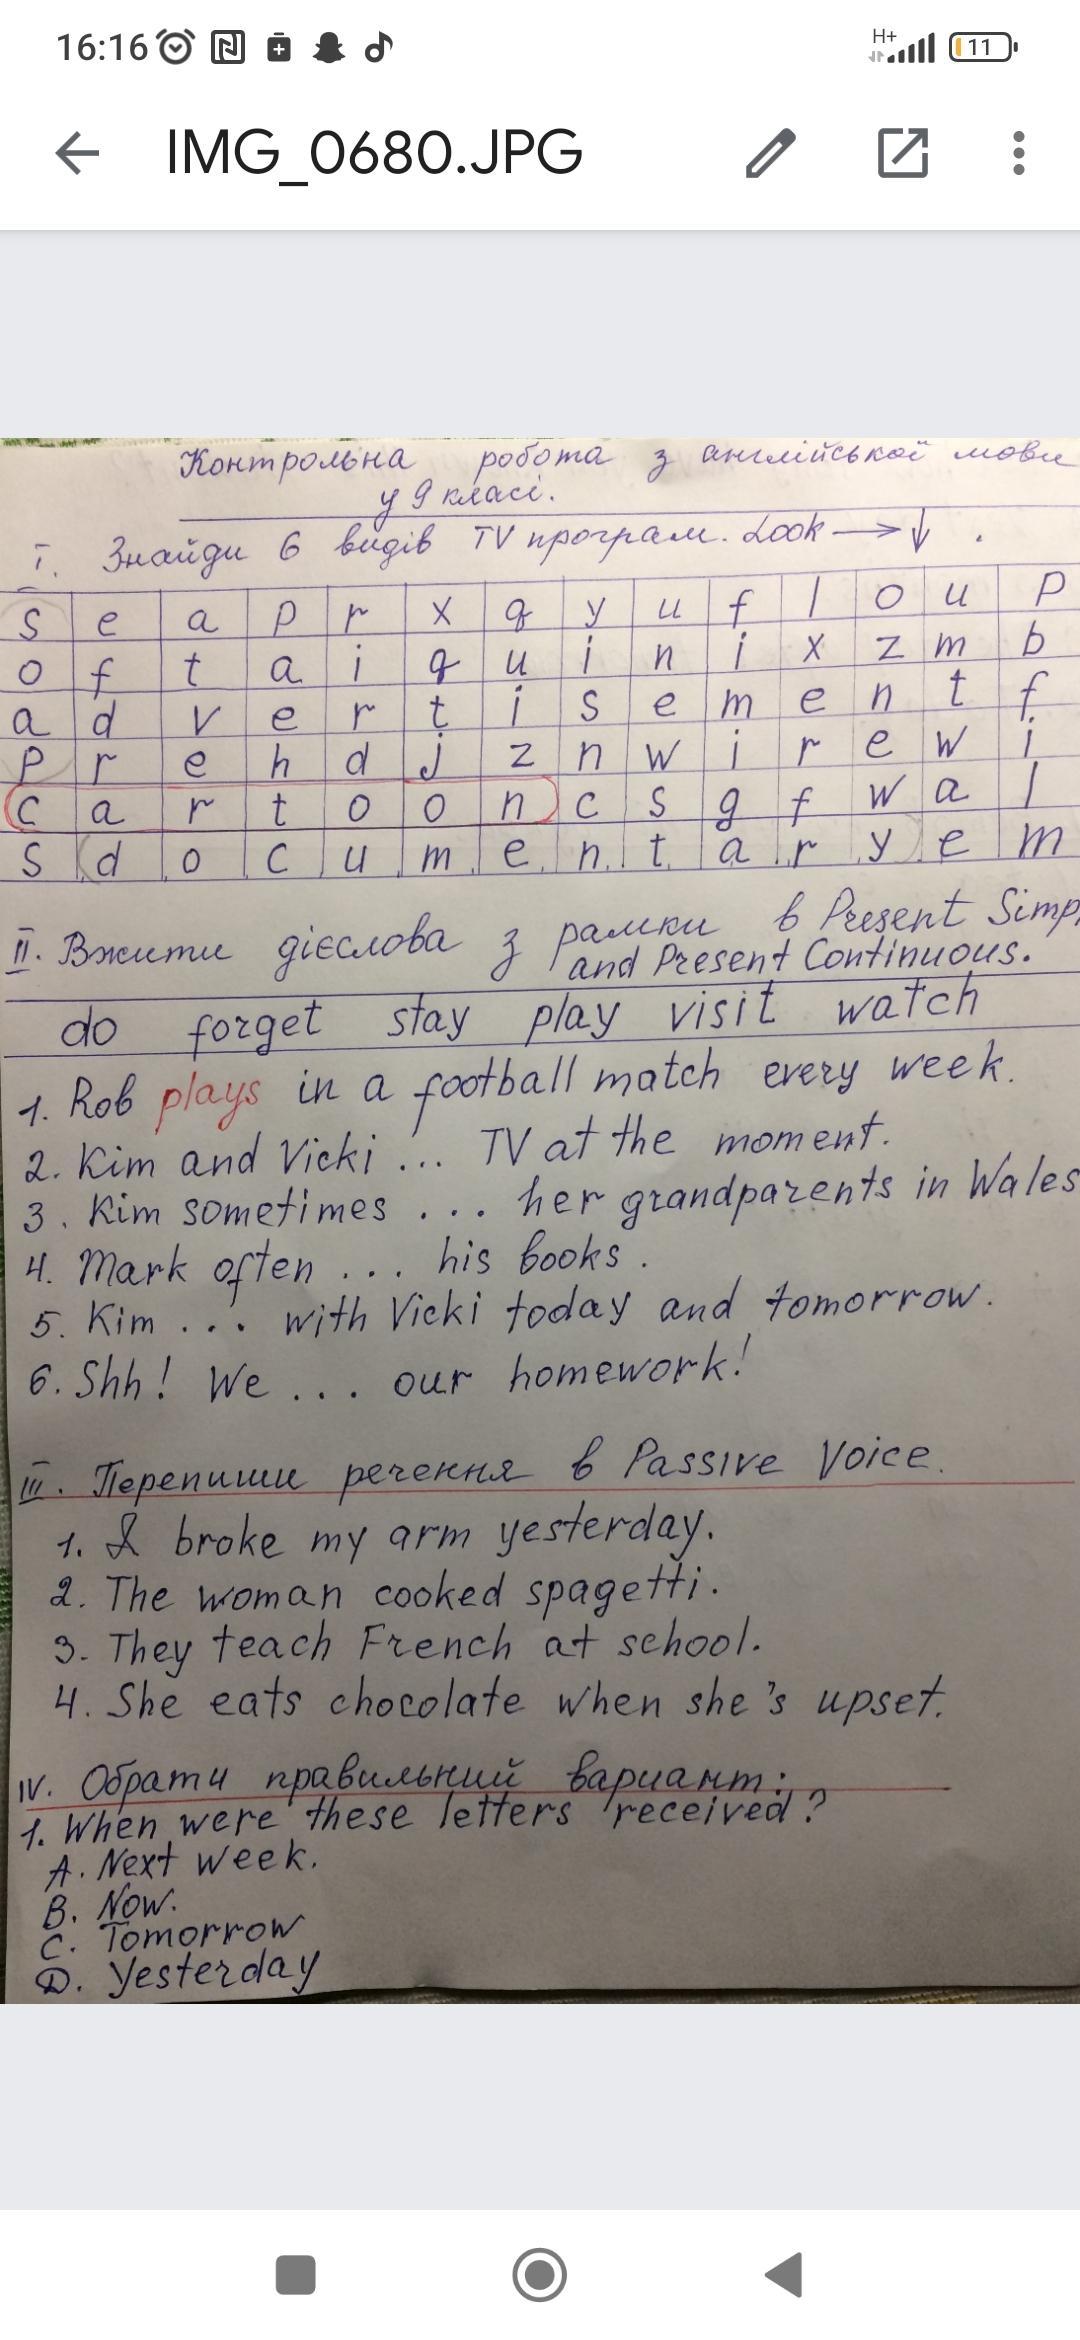 16:16
H+
11
IMG_0680.JPG
Контрольна робота з англійської мови
у 9 класі.
I. Знайди 6 видів TV програм. Look → ↓ .
s e a p r x q y u f l o u p
o f t a i q u i n i x z m b
a d v e r t i s e m e n t f
p r e h d j z n w i r e w i
c a r t o o n c s g f w a l
s d o c u m e n t a r y e m
II. Вжити дієслова з рамки в Present Simp
and Present Continuous.
do forget stay play visit watch
1. Rob plays in a football match every week.
2. Kim and Vicki ... TV at the moment.
3. Kim sometimes ... her grandparents in Wales
4. Mark often ... his books.
5. Kim ... with Vicki today and tomorrow.
6. Shh! We ... our homework!
III. Перепиши речення в Passive Voice.
1. I broke my arm yesterday.
2. The woman cooked spagetti.
3. They teach French at school.
4. She eats chocolate when she's upset.
IV. Обрати правильний вариант:
1. When were these letters received?
A. Next week.
B. Now.
C. Tomorrow
D. Yesterday